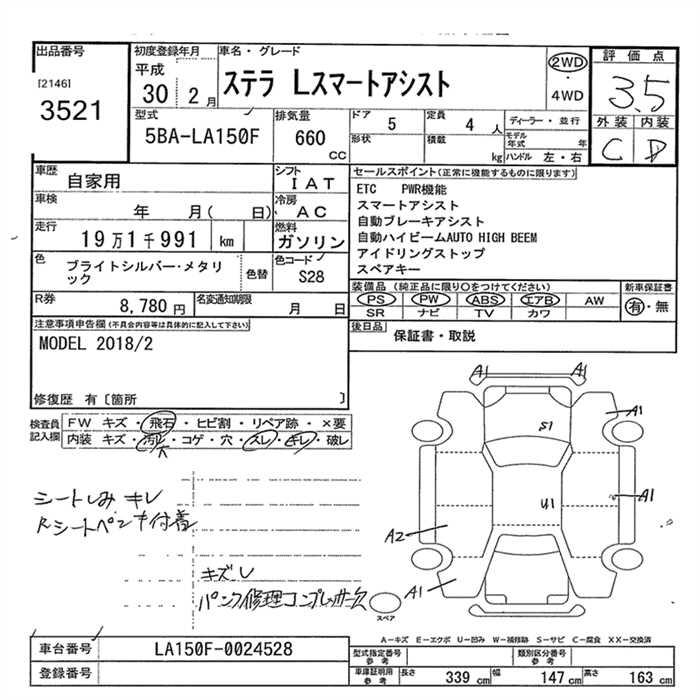 出品番号
[2146]
3521
初度登録年月
平成
30 2月
車名・グレード
ステラ Lスマートアシスト
2WD
・
4WD
評価点
3.5
外装 内装
C D
型式
5BA-LA150F
排気量
660
CC
ドア 5
定員 4 人
形状
積載 kg
ディーラー・並行
モデル年式 年
ハンドル 左・右
車歴 自家用
シフト IAT
車検 年 月( 日)
冷房 AC
走行 19万1千991 km
燃料 ガソリン
色 ブライトシルバー・メタリック
色替
色コード S28
R券 8,780円
名変通知期限 月 日
セールスポイント(正常に機能するものに限ります)
ETC PWR機能
スマートアシスト
自動ブレーキアシスト
自動ハイビームAUTO HIGH BEEM
アイドリングストップ
スペアキー
装備品 (純正品に限り○をつけてください)
PS PW ABS エアB AW
SR ナビ TV カワ
新車保証書
有・無
後日品 保証書・取説
注意事項申告欄(不具合内容等は具体的に記入して下さい)
MODEL 2018/2
修復歴 有〔箇所 〕
検査員記入欄
FW キズ・飛石・ヒビ割・リペア跡・×要
内装 キズ・汚レ・コゲ・穴・スレ・キレ・破レ
大
シートしみ キレ
Rシートペンキ付着
キズレ
パンク修理コンプレッサー欠
A1 A1
A1
S1
U1
A1
A2
A1
スペア
車台番号 LA150F-0024528
登録番号
A−キズ E−エクボ U−凹み W−補修跡 S−サビ C−腐食 XX−交換済
型式指定番号 参考
類別区分番号 参考
車庫証明用 参考
長さ 339 cm
幅 147 cm
高さ 163 cm